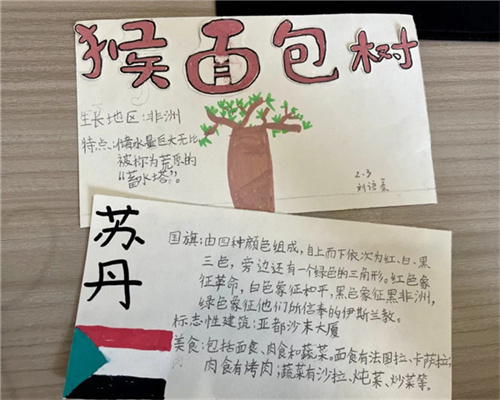 猴面包树
生长地区:非洲
特点:储水量巨大无比
被称为荒原的
“蓄水塔”。
2.3
苏丹
国旗:由四种颜色组成,自上而下依次为红、白、黑
三色,旁边还有一个绿色的三角形。红色象
征革命,白色象征和平,黑色象征黑非洲,
绿色象征他们所信奉的伊斯兰教。
标志性建筑:亚都沙末大厦
美食:包括面食、肉食和蔬菜。面食有法图拉、卡萨拉;
肉食有烤肉;蔬菜有沙拉、炖菜、炒菜等。